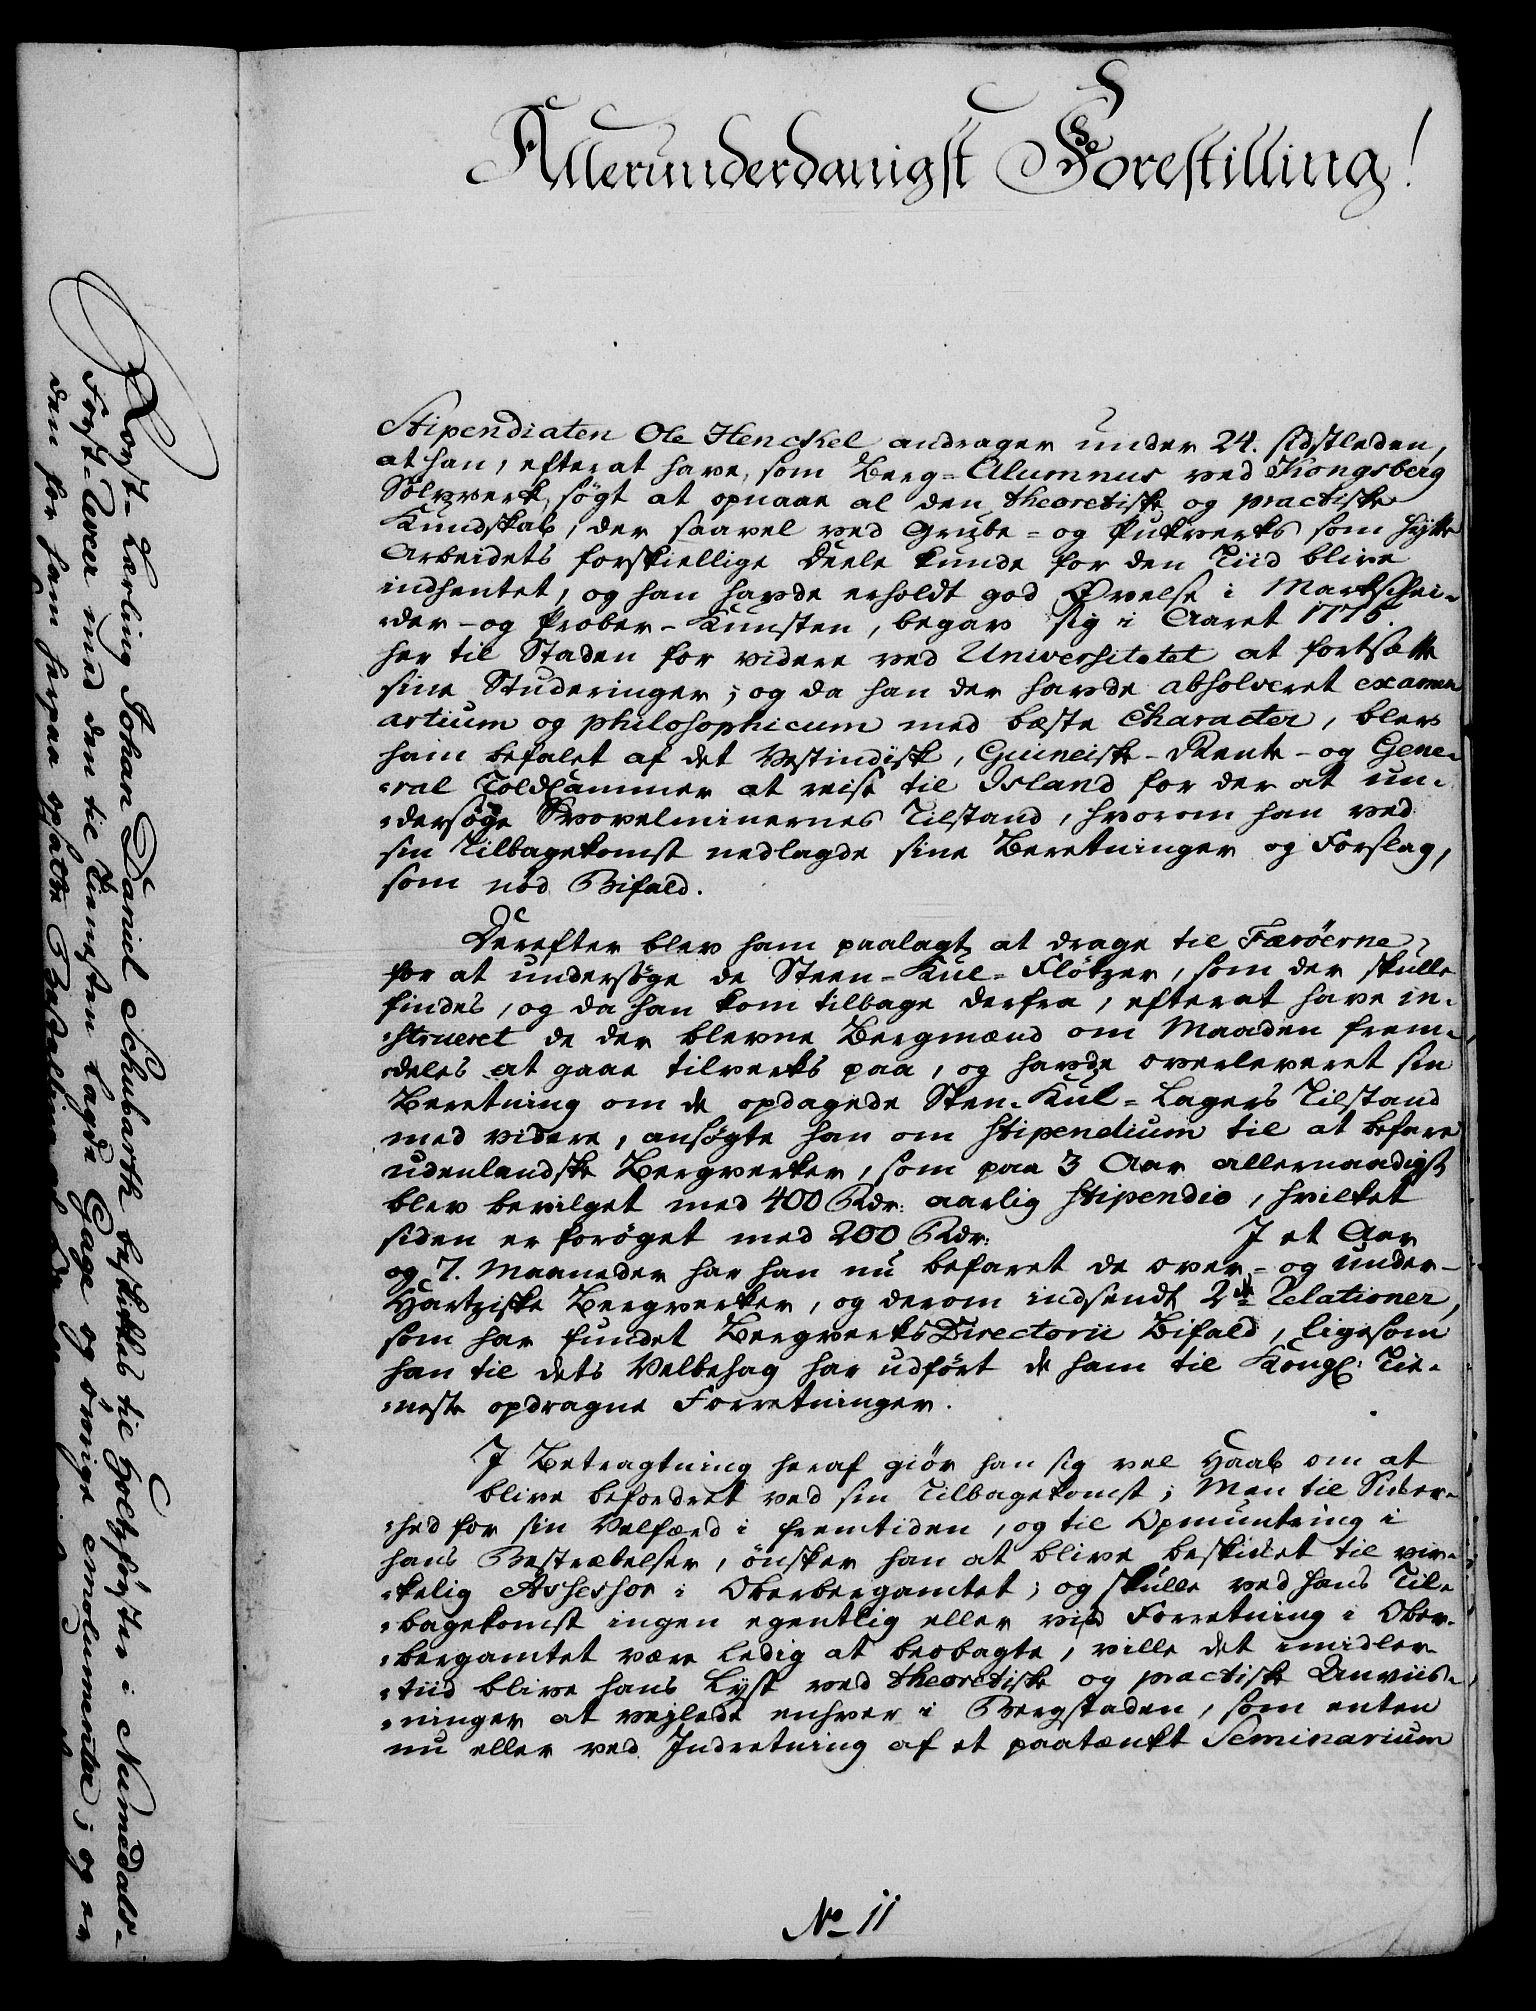 Allerunderdanigst Forestilling!
Stipendiaten Ole Henckel andrager under 24. sidstleden,
at han, efter at have, som Berg-Alumnus ved Kongsberg
Sølvverk, søgt at opnaae al den theoretiske og practiske
Kundskab, der saavel ved Grube- og Pukverks som Hytte
Arbeidets forskiellige Deele kunde for den Tiid blive
indhentet, og han havde erholdt god Øvelse i Markschei-
:der- og Prober-Kunsten, begav sig i Aaret 1775.
her til Staden for videre ved Universitetet at fortsætte
sine Studeringer; og da han der havde absolveret examen
artium og philosophicum med bæste Character, blev
ham befalet af det Vestindisk, Guineiske- Rente- og Gene-
:ral Toldkammer at reise til Island for der at un-
:dersøge Svovelminernes Tilstand, hvorom han ved
sin Tilbagekomst nedlagde sine Beretninger og Forslag,
som nød Bifald.
Derefter blev ham paalagt at drage til Færöerne
for at undersøge de Steen-Kul-Flötzer, som der skulle
findes, og da han kom tilbage derfra, efter at have in-
:strueret de der blevne Bergmænd om Maaden frem-
:deles at gaae tilverks paa, og havde overleveret sin
Beretning om de opdagede Sten-Kul-Lagers Tilstand
med videre, ansøgte han om Stipendium til at befare
udenlandske Bergverker, som paa 3 Aar allernaadigst
blev bevilget med 400 Rdr: aarlig Stipendio, hvilket
siden er forøget med 200 Rdr: I et Aar
og 7. Maaneder har han nu befaret de over- og under-
Hartziske Bergverker, og derom indsendt 2de Relationer,
som har fundet Bergverks Directorii Bifald, ligesom
han til dets Velbehag har udført de ham til Kongl: Tie-
:neste opdragne Forretninger.
I Betragtning heraf giör han sig vel Haab om at
blive befordret ved sin Tilbagekomst; Men til Sikker-
:hed for sin Velfærd i Fremtiden, og til Opmuntring i
hans Bestræbelser, ønsker han at blive beskikket til vir-
:kelig Assessor i Oberbergamtet; og skulle ved hans Til-
:bagekomst ingen egentlig eller viss Forretning i Ober-
:bergamtet være ledig at beobagte, ville det imidler-
:tiid blive hans Lyst ved theoretiske og practiske Anviis-
:ninger at vejlede enhver i Bergstaden, som enten
nu eller ved Indretning af et paatænkt Seminarium
No 11
Forst-Lærling Johan Daniel Schubarth beskikkes til Holtzförster i Numedals-
Forst- med den til Tienesten lagde Gage og övrige emolumenter; og er
den for ham herpaa opsatte Bestalling